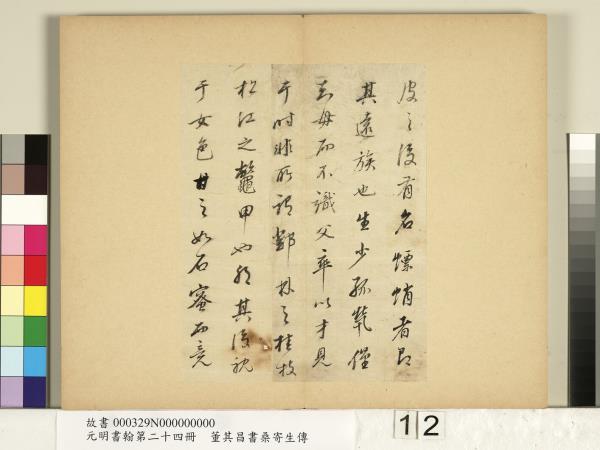 皮之後有名螵蛸者即
其遠族也生少孤煢僅
知母而不識父卒以才見
于時非所謂鄧林之桂枝
松江之鼈甲也耶其後耽
于女色甘之如石蜜而竟
故書 000329N000000000
元明書翰第二十四冊 董其昌書桑寄生傳
12